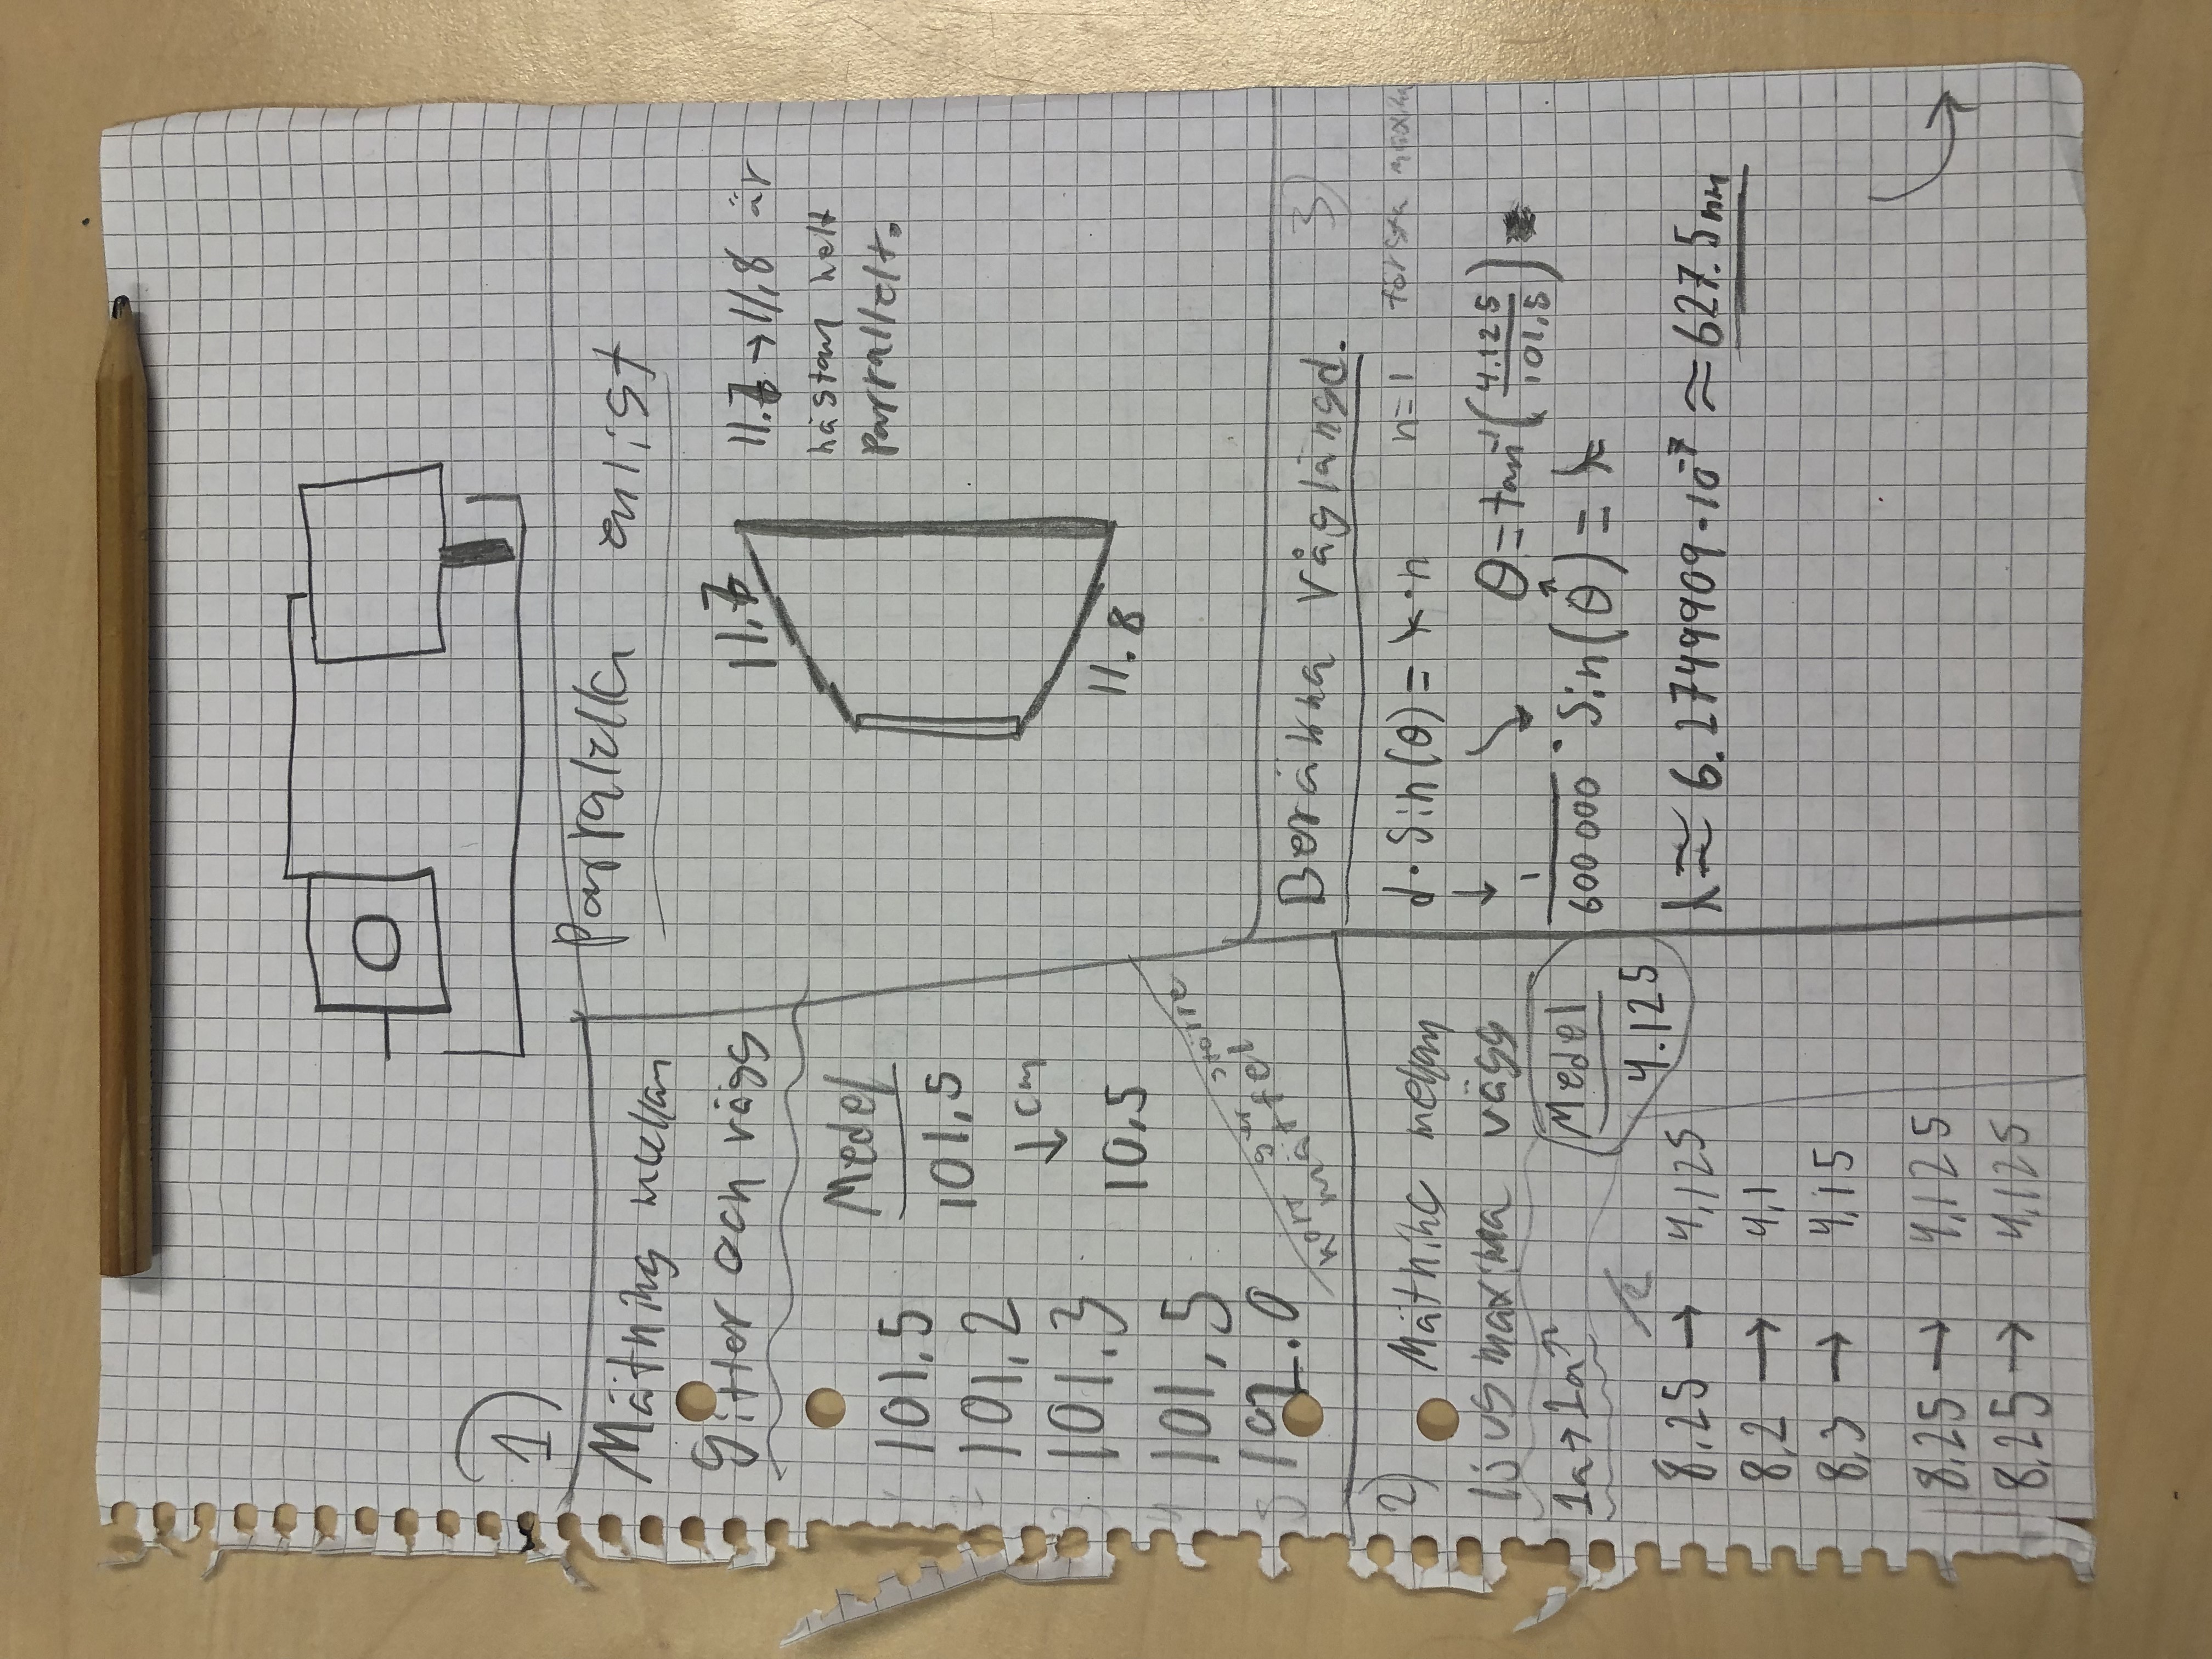 1)
Mätning mellan
gitter och vägg
101.5
101.2
101.3
101.5
102.0
Medel
101.5
↓ cm
10.5
kort ger större
mätfel
Parralella enlist
11.7
11.8
11.7 → 11.8 är
nästan helt
Parrallelt.
2) Mätning mellan
ljusmaxima vägg
1a → 1a
Medel
4.125
8.25 → 4,125
8,2 → 4,1
8,3 → 4,15
8.25 → 4,125
8.25 → 4,125
Beräkna våglängd. 3)
d · Sin(θ) = λ · n n=1 första maxima
θ = tan⁻¹(4.125/101.5)
1/600 000 · Sin(θ) = λ
λ ≈ 6.2749909 · 10⁻⁷ ≈ 627.5nm